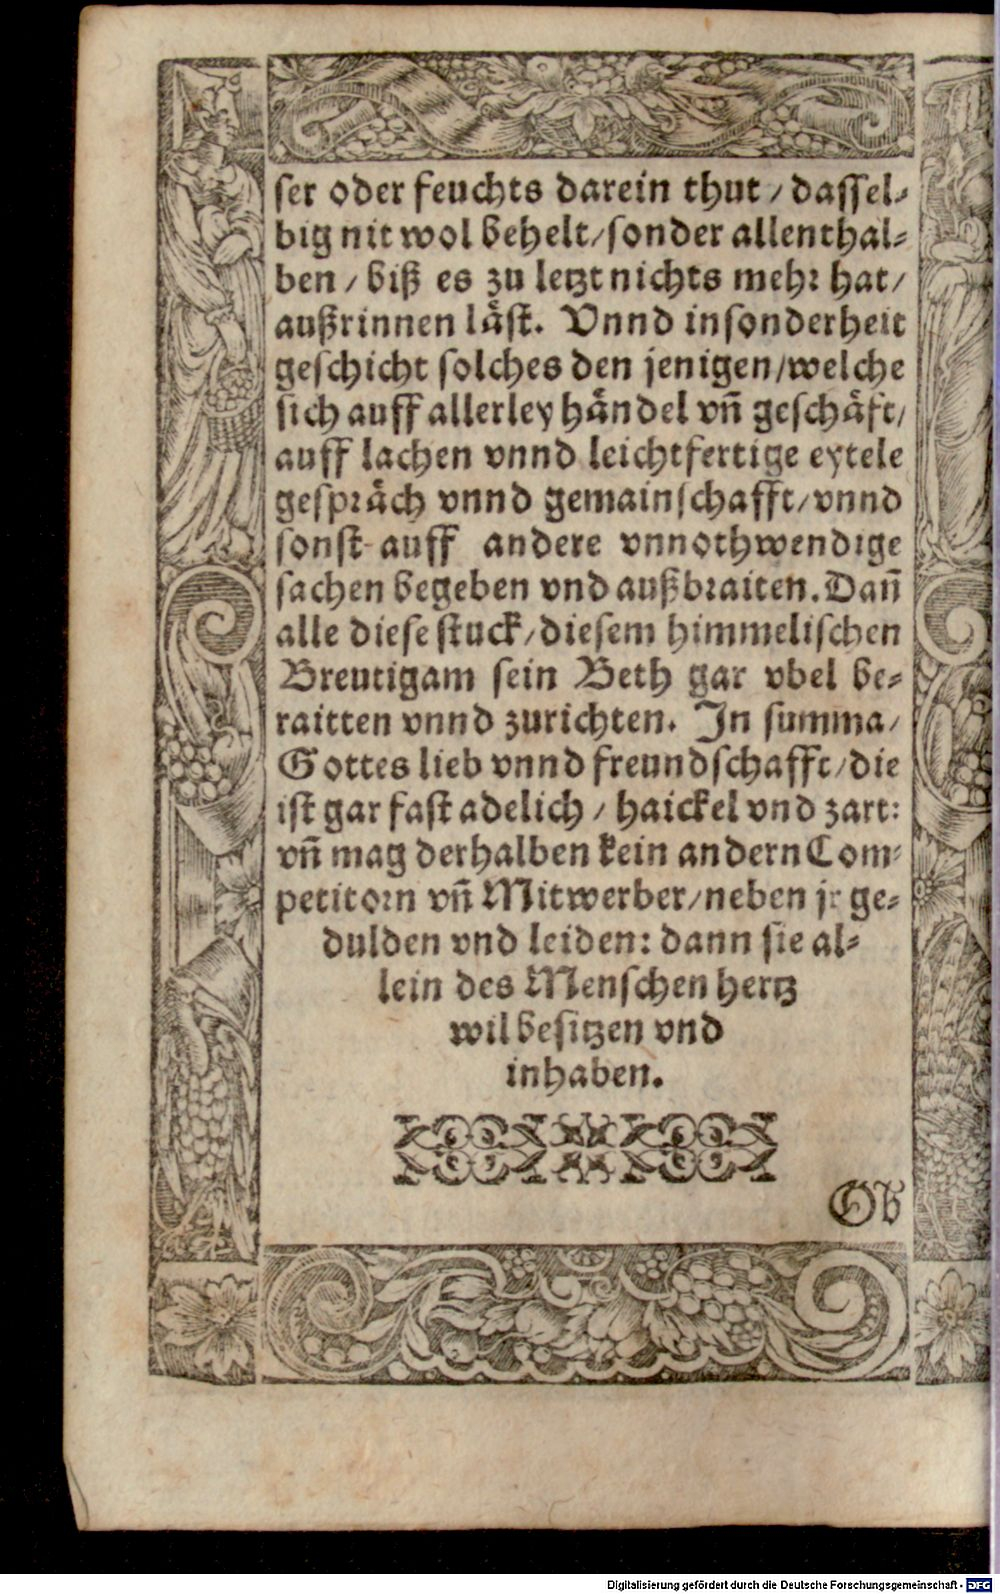 ser oder feuchts darein thut / dassel⸗
big nit wol behelt / sonder allenthal⸗
ben / biß es zu letzt nichts mehr hat /
außrinnen läst. Vnnd insonderheit
geschicht solches den jenigen / welche
sich auff allerley händel vñ geschäft /
auff lachen vnnd leichtfertige eytele
gespräch vnnd gemainschafft / vnnd
sonst auff andere vnnothwendige
sachen begeben vnd außbraiten. Dañ
alle diese stuck / diesem himmelischen
Breutigam sein Beth gar vbel be⸗
raitten vnnd zurichten. In summa /
Gottes lieb vnnd freundschafft / die
ist gar fast adelich / haickel vnd zart:
vñ mag derhalben kein andern Com⸗
petitorn vñ Mitwerber / neben jr ge⸗
dulden vnd leiden: dann sie al⸗
lein des Menschen hertz
wil besitzen vnd
inhaben.
Ob
Digitalisierung gefördert durch die Deutsche Forschungsgemeinschaft - DFG